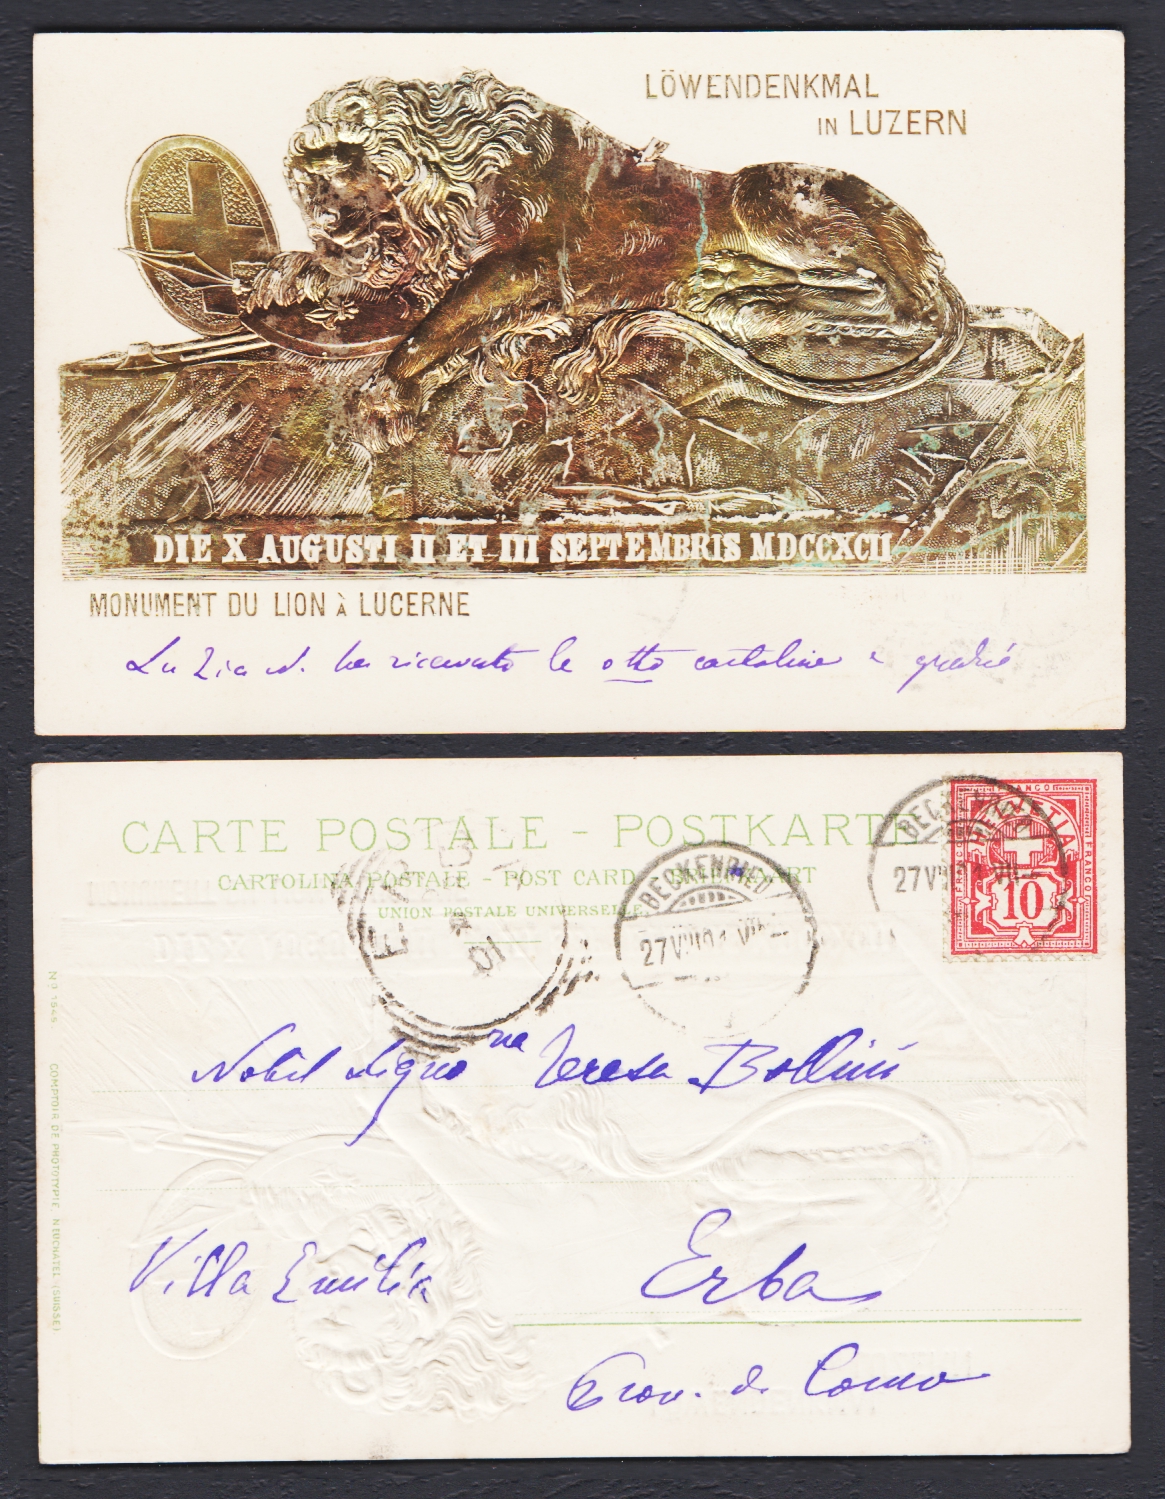 LÖWENDENKMAL
IN LUZERN
DIE X AUGUSTI II ET III SEPTEMBRIS MDCCXCII
MONUMENT DU LION À LUCERNE
La Zia ha ricevuto le otto cartoline e
CARTE POSTALE - POSTKARTE
CARTOLINA POSTALE - POST CARD - BRIEFKAART
UNION POSTALE UNIVERSELLE
FRANCO
HELVETIA
FRANCO
10
BECKENRIED
27 VIII 01
BECKENRIED
27 VIII 01
ERBA
01
Nobil Signo na Teresa Bollini
Villa Emilia
Erba
Prov. di Como
No 1545 COMPTOIR DE PHOTOTYPIE, NEUCHATEL (SUISSE)